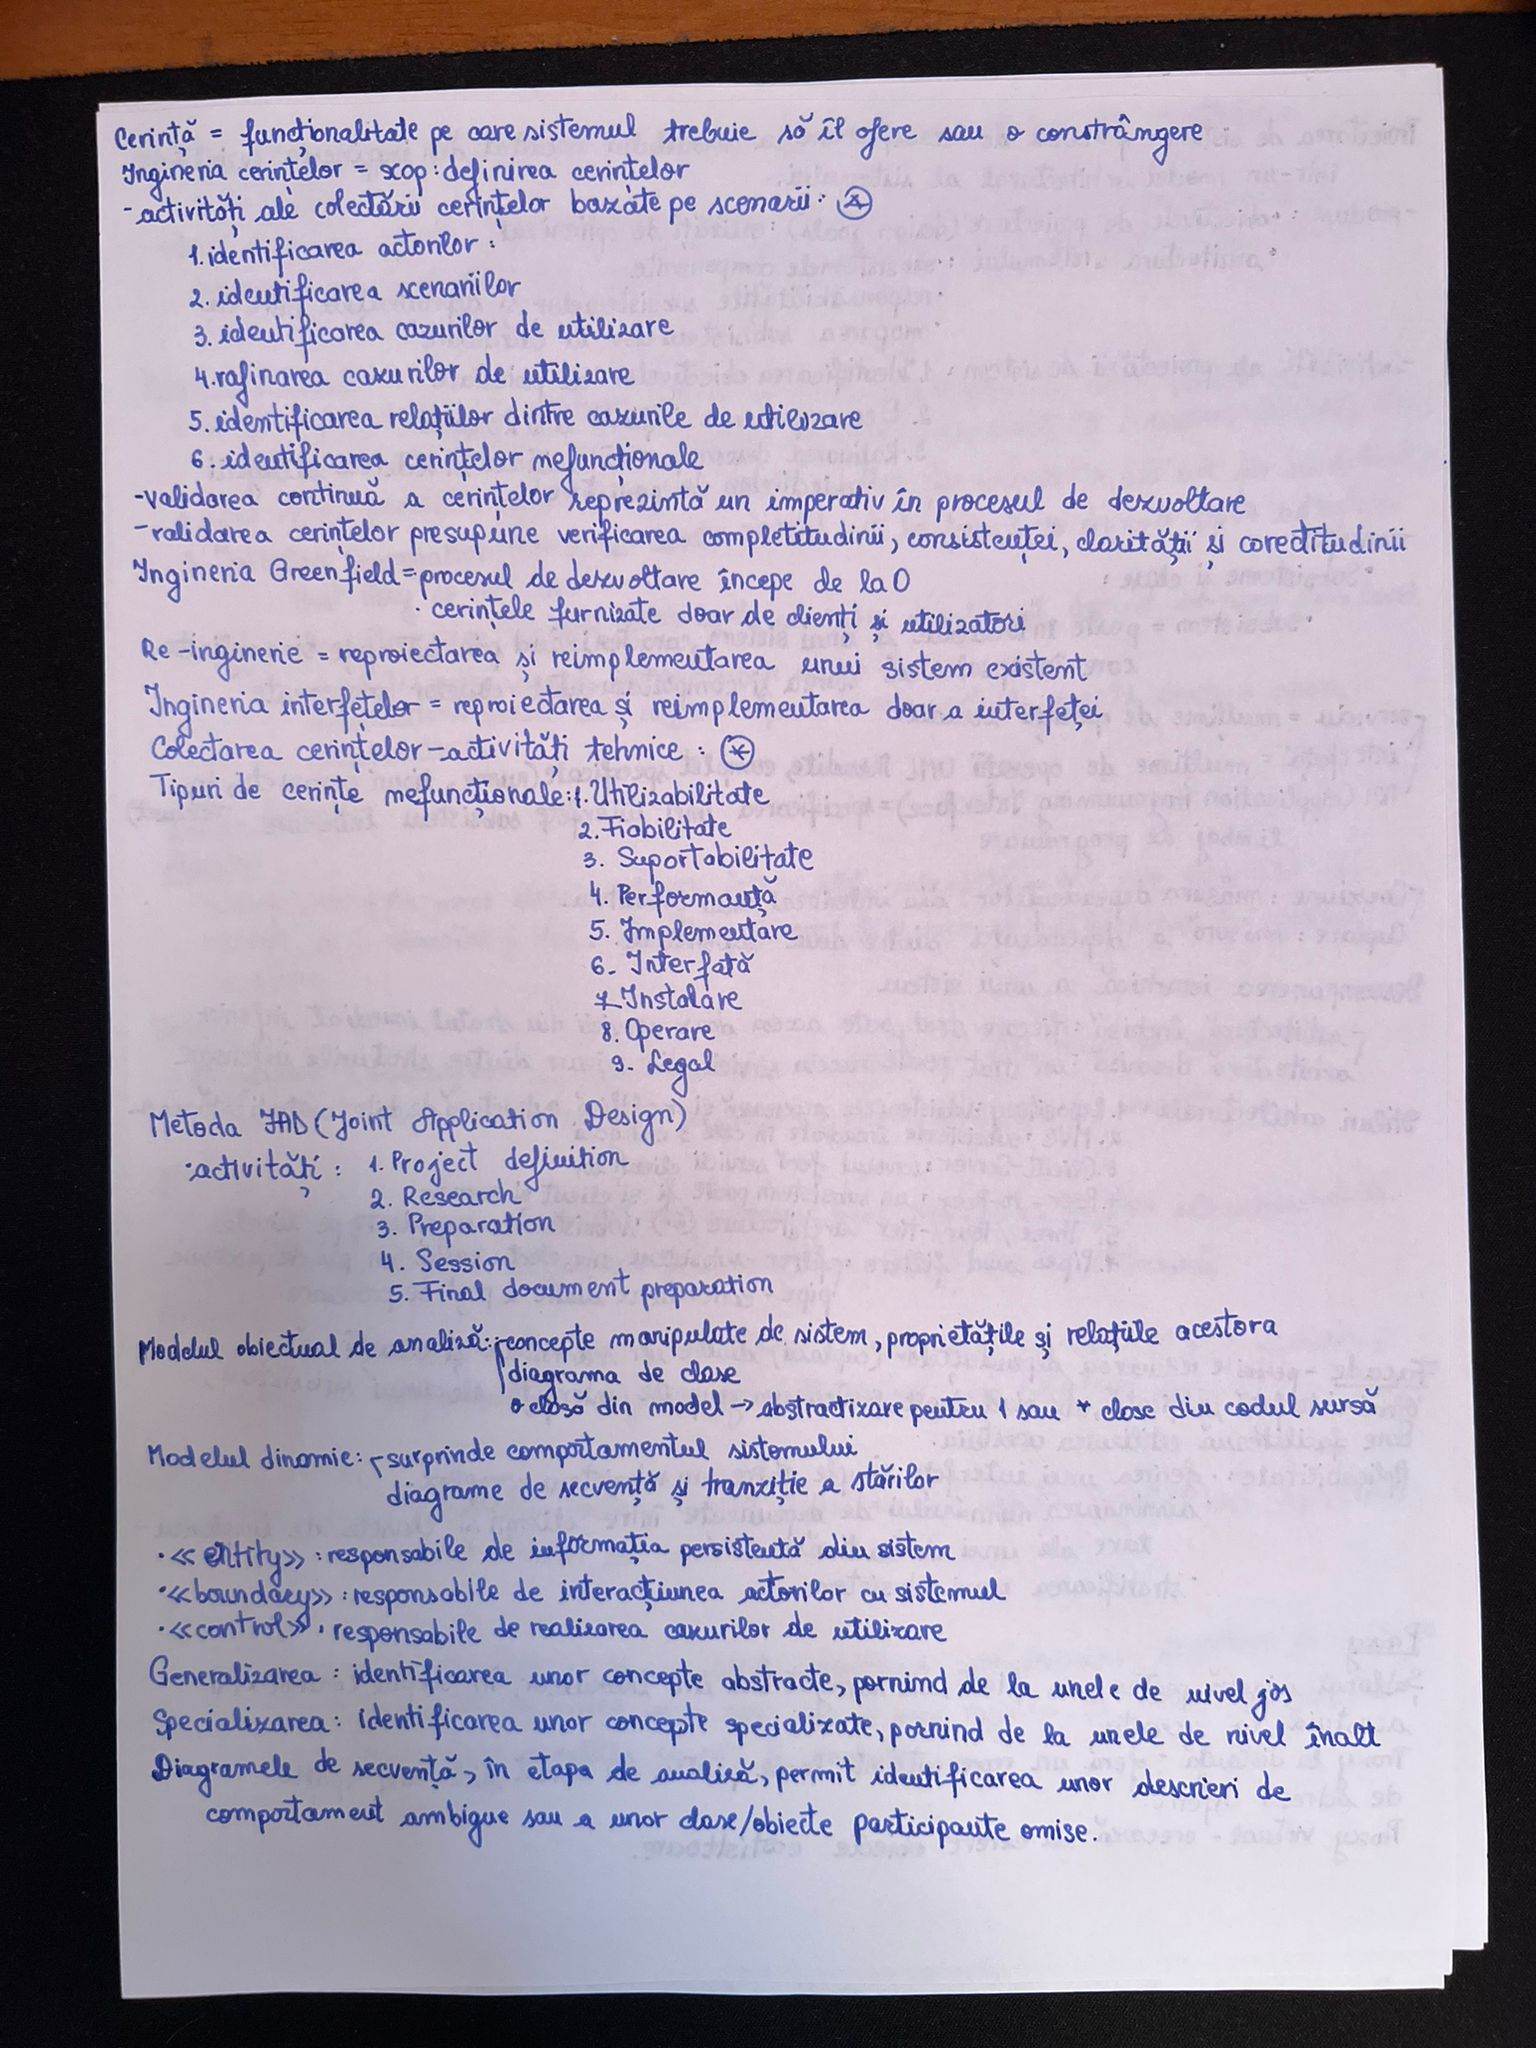 Cerință = funcționalitate pe care sistemul trebuie să îl ofere sau o constrângere
Ingineria cerințelor = scop: definirea cerințelor
- activități ale colectării cerințelor bazate pe scenarii:
1. identificarea actorilor:
2. identificarea scenariilor
3. identificarea cazurilor de utilizare
4. rafinarea cazurilor de utilizare
5. identificarea relațiilor dintre cazurile de utilizare
6. identificarea cerințelor nefuncționale
- validarea continuă a cerințelor reprezintă un imperativ în procesul de dezvoltare
- validarea cerințelor presupune verificarea completitudinii, consistenței, clarității și corectitudinii
Ingineria Greenfield = procesul de dezvoltare începe de la 0
· cerințele furnizate doar de clienți și utilizatori
Re-inginerie = reproiectarea și reimplementarea unui sistem existent
Ingineria interfețelor = reproiectarea și reimplementarea doar a interfeței
Colectarea cerințelor - activități tehnice: *
Tipuri de cerințe nefuncționale: 1. Utilizabilitate
2. Fiabilitate
3. Suportabilitate
4. Performanță
5. Implementare
6. Interfață
7. Instalare
8. Operare
9. Legal
Metoda JAD (Joint Application Design)
· activități: 1. Project definition
2. Research
3. Preparation
4. Session
5. Final document preparation
Modelul obiectual de analiză: concepte manipulate de sistem, proprietățile și relațiile acestora
diagrama de clase
o clasă din model → abstractizare pentru 1 sau * clase din codul sursă
Modelul dinamic: surprinde comportamentul sistemului
diagrame de secvență și tranziție a stărilor
· <<entity>>: responsabile de informația persistentă din sistem
· <<boundary>>: responsabile de interacțiunea actorilor cu sistemul
· <<control>>: responsabile de realizarea cazurilor de utilizare
Generalizarea: identificarea unor concepte abstracte, pornind de la unele de nivel jos
Specializarea: identificarea unor concepte specializate, pornind de la unele de nivel înalt
Diagramele de secvență, în etapa de analiză, permit identificarea unor descrieri de
comportament ambigue sau a unor clase/obiecte participante omise.